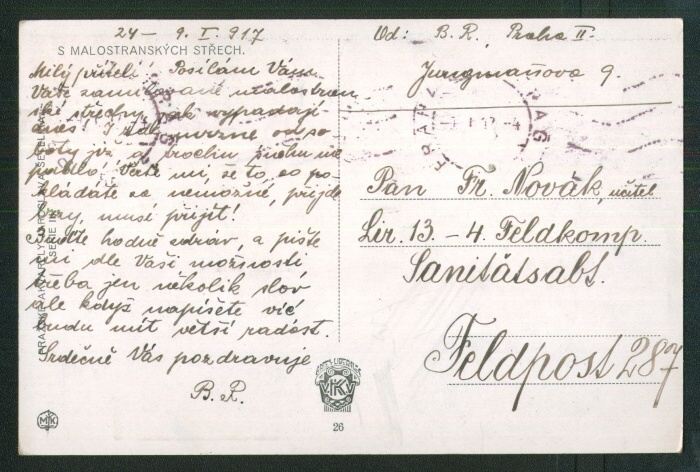 24 – 9. I. 917
S MALOSTRANSKÝCH STŘECH.
Milý příteli! Posílám Vám
Vaše zamilované malostran
ské střechy, jak vypadají
dnes! I zde mrzne od so
boty již a trochu sněhu na
padlo. Věřte mi, že to, co po
kládáte za nemožné, přijde
brzy, musí přijít!
Buďte hodně zdráv, a pište
mi dle Vaší možnosti
třeba jen několik slov
ale když napíšete víc
budu mít větší radost.
Srdečně Vás pozdravuje
B. R.
Od: B. R. Praha II.
Jungmannova 9.
PRAG
Pan Fr. Novák, učitel
Lir. 13. – 4. Feldkomp.
Sanitätsabt.
Feldpost 287
26